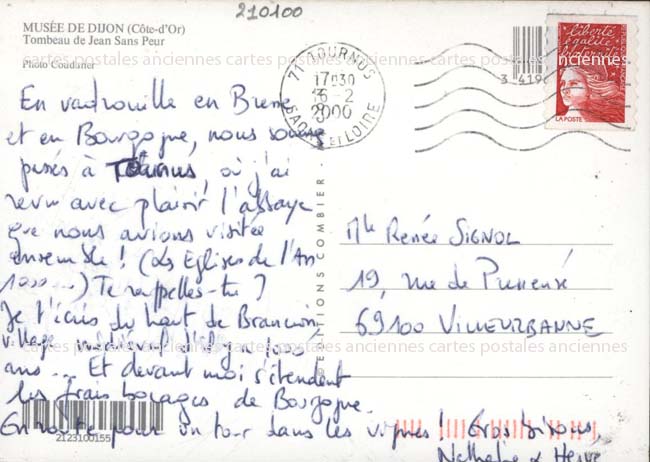 210100
MUSÉE DE DIJON (Côte-d'Or)
Tombeau de Jean Sans Peur
Photo Coudurier
71 TOURNUS
17H30
16-2
2000
SAONE ET LOIRE
3 419
liberté
égalité
fraternité
LA POSTE
cartes postales anciennes cartes postales anciennes cartes postales anciennes
En vadrouille en Bresse
et en Bourgogne, nous sommes
passés à Tournus, où j'ai
revu avec plaisir l'abbaye
que nous avions visitée
ensemble ! (Les Eglises de l'An
1000...) Te rappelles-tu ?
Je t'écris du haut de Brancion,
village médiéval d'il y a 1000
ans... Et devant moi s'étendent
les frais bocages de Bourgogne.
En route pour un tour dans les vignes ! Gros bisous,
Nathalie et Hervé
EDITIONS COMBIER
Mlle Renée SIGNOL
19, rue de
69100 VILLEURBANNE
cartes postales anciennes cartes postales anciennes cartes postales anciennes
2123100155